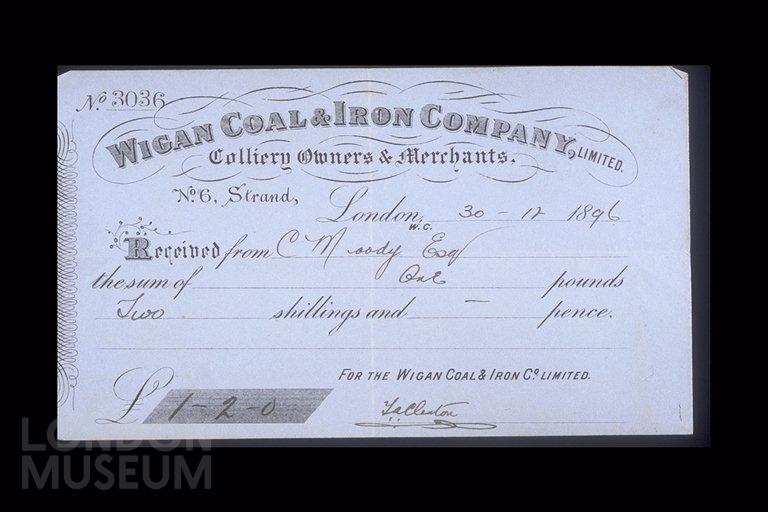 No 3036
WIGAN COAL & IRON COMPANY, LIMITED.
Colliery Owners & Merchants.
No. 6, Strand,
London, W.C. 30 - 12 1896
Received from C Moody Esq
the sum of One pounds
Two shillings and — pence.
FOR THE WIGAN COAL & IRON Co. LIMITED.
£ 1-2-0
LONDON
MUSEUM